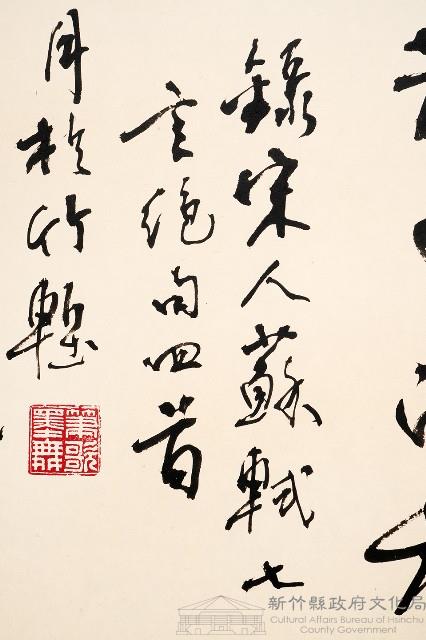 錄宋人蘇軾七
言絕句四首
月於竹塹
筆歌
墨舞
新竹縣政府文化局
Cultural Affairs Bureau of Hsinchu
County Government